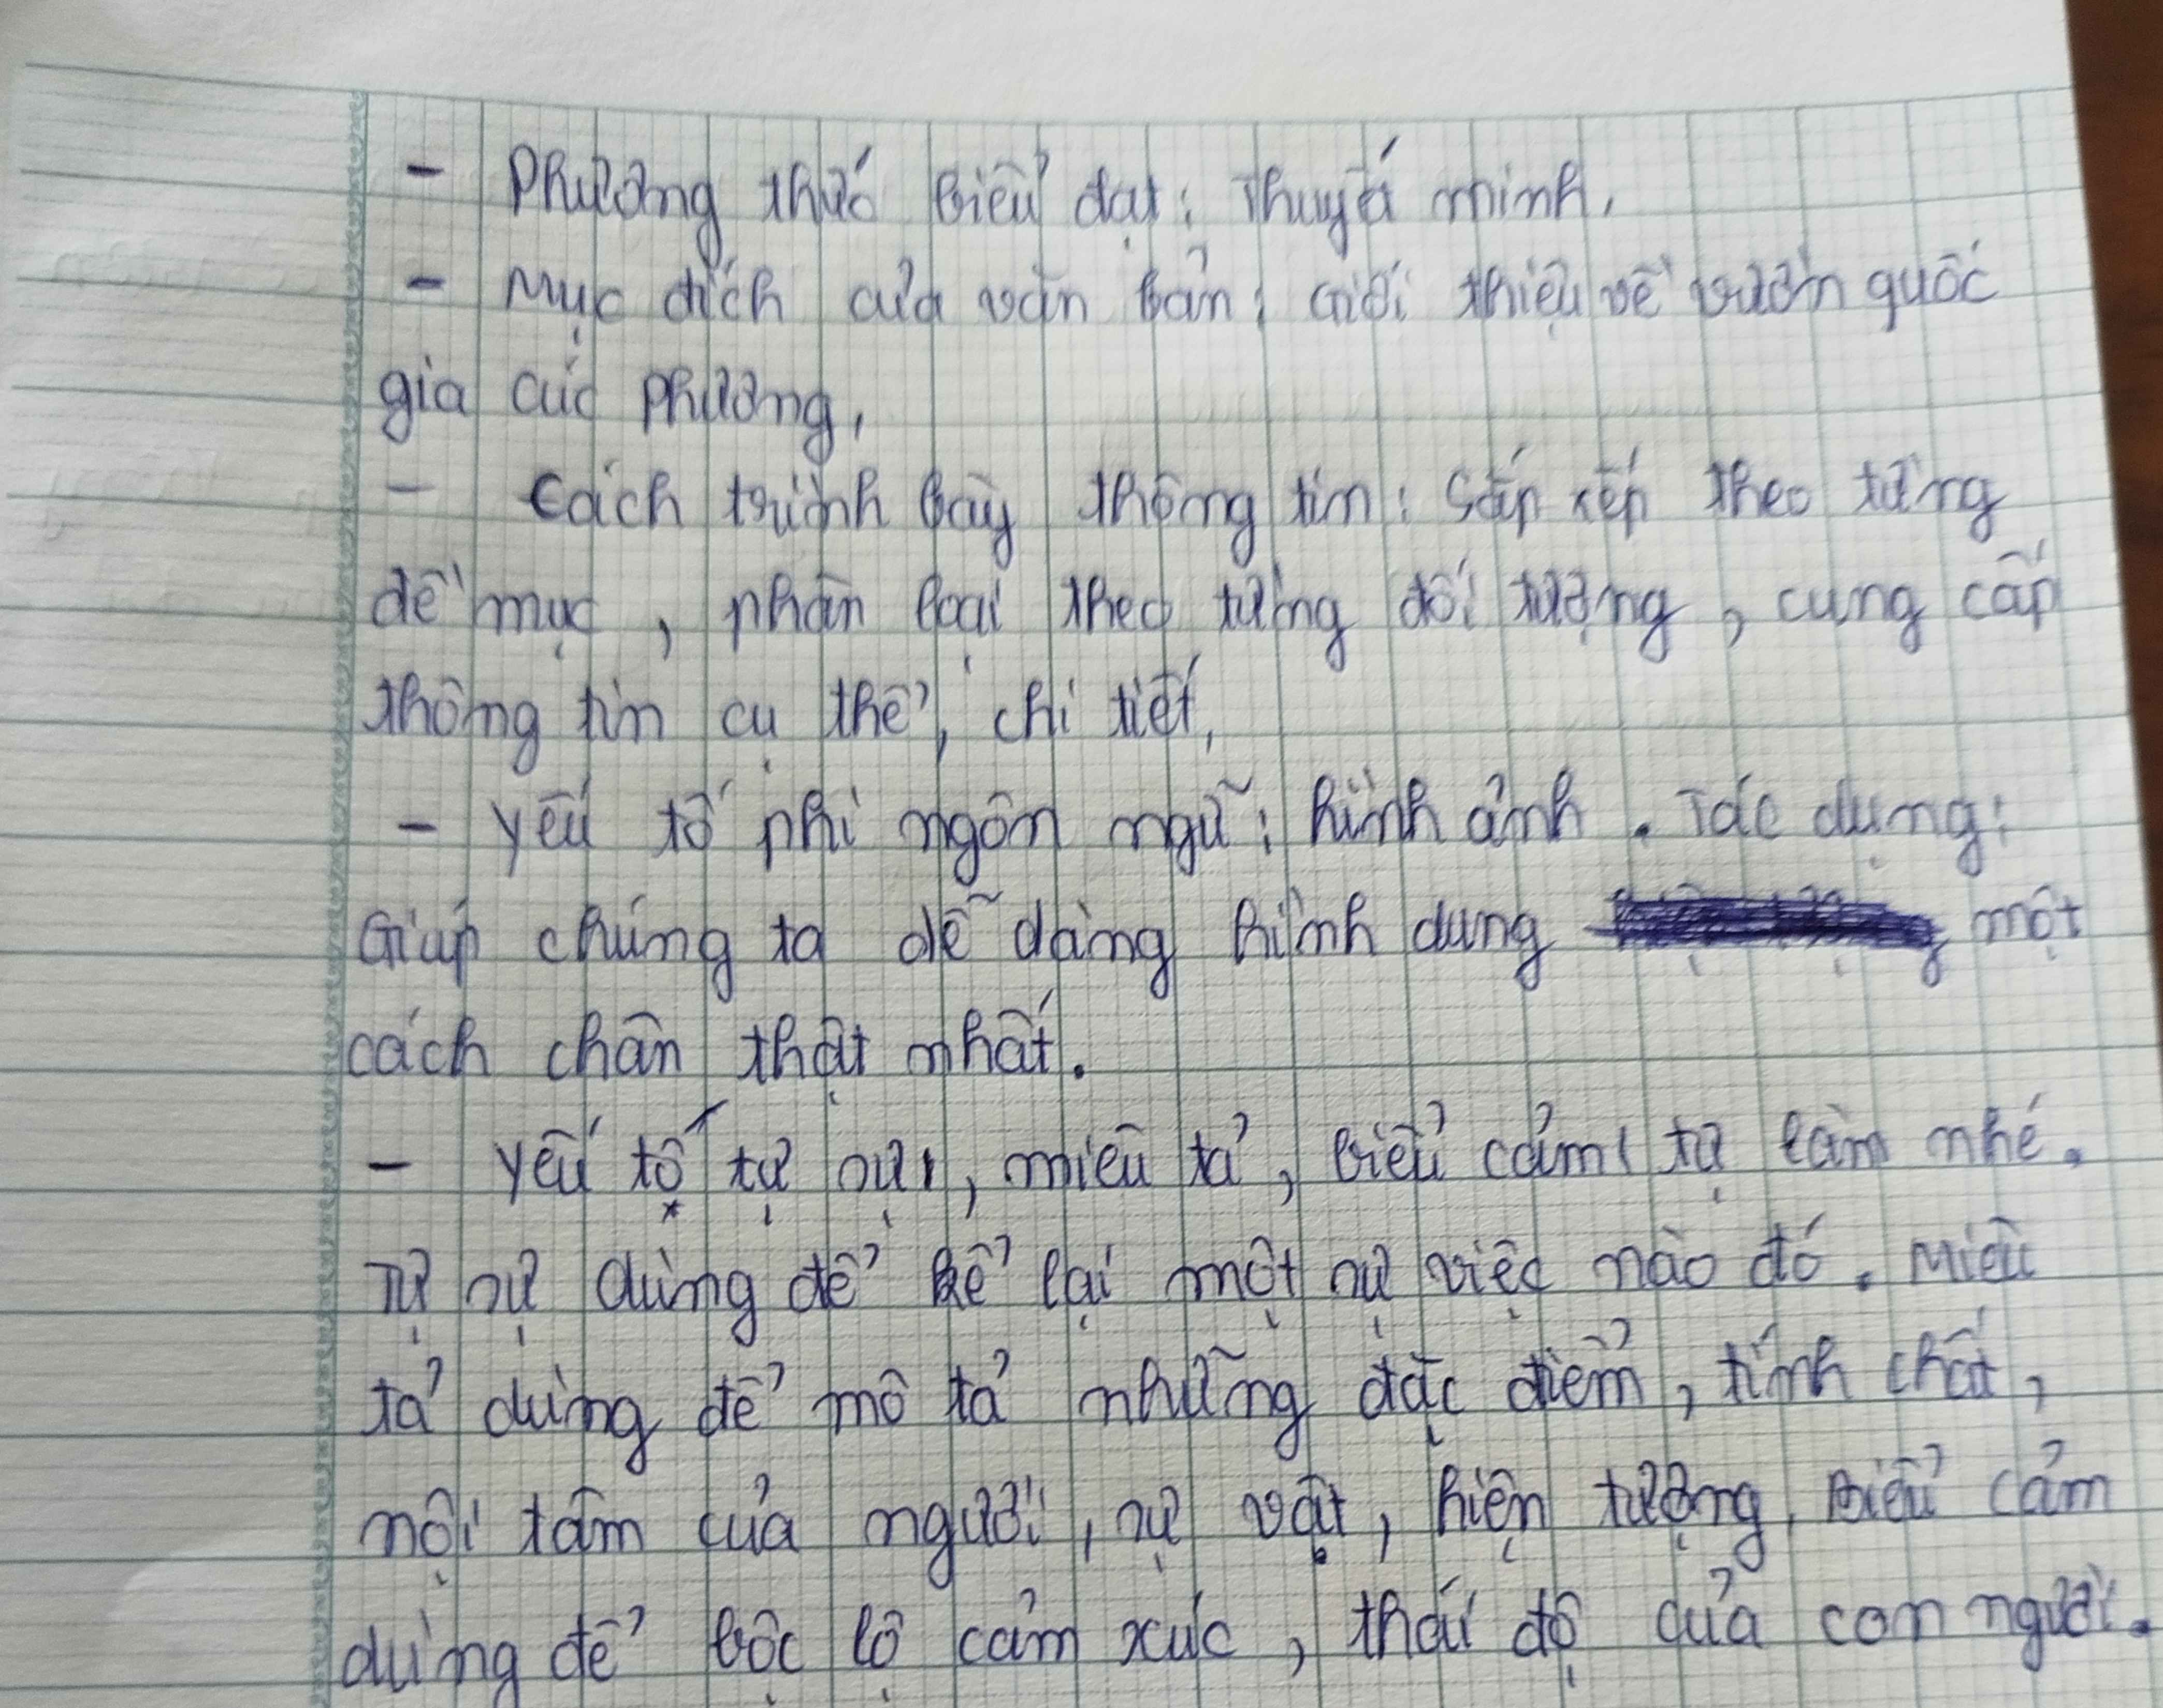 - Phương thức biểu đạt: Thuyết minh.
- Mục đích của văn bản: Giới thiệu về vườn quốc
gia Cúc Phương.
- Cách trình bày thông tin: Sắp xếp theo từng
đề mục, phân loại theo từng đối tượng, cung cấp
thông tin cụ thể, chi tiết.
- Yếu tố phi ngôn ngữ: hình ảnh. Tác dụng:
Giúp chúng ta dễ dàng hình dung một
cách chân thật nhất.
- Yếu tố tự sự, miêu tả, biểu cảm: tự làm nhé.
Tự sự dùng để kể lại một sự việc nào đó. Miêu
tả dùng để mô tả những đặc điểm, tính chất,
nội tâm của người, sự vật, hiện tượng. Biểu cảm
dùng để bộc lộ cảm xúc, thái độ của con người.